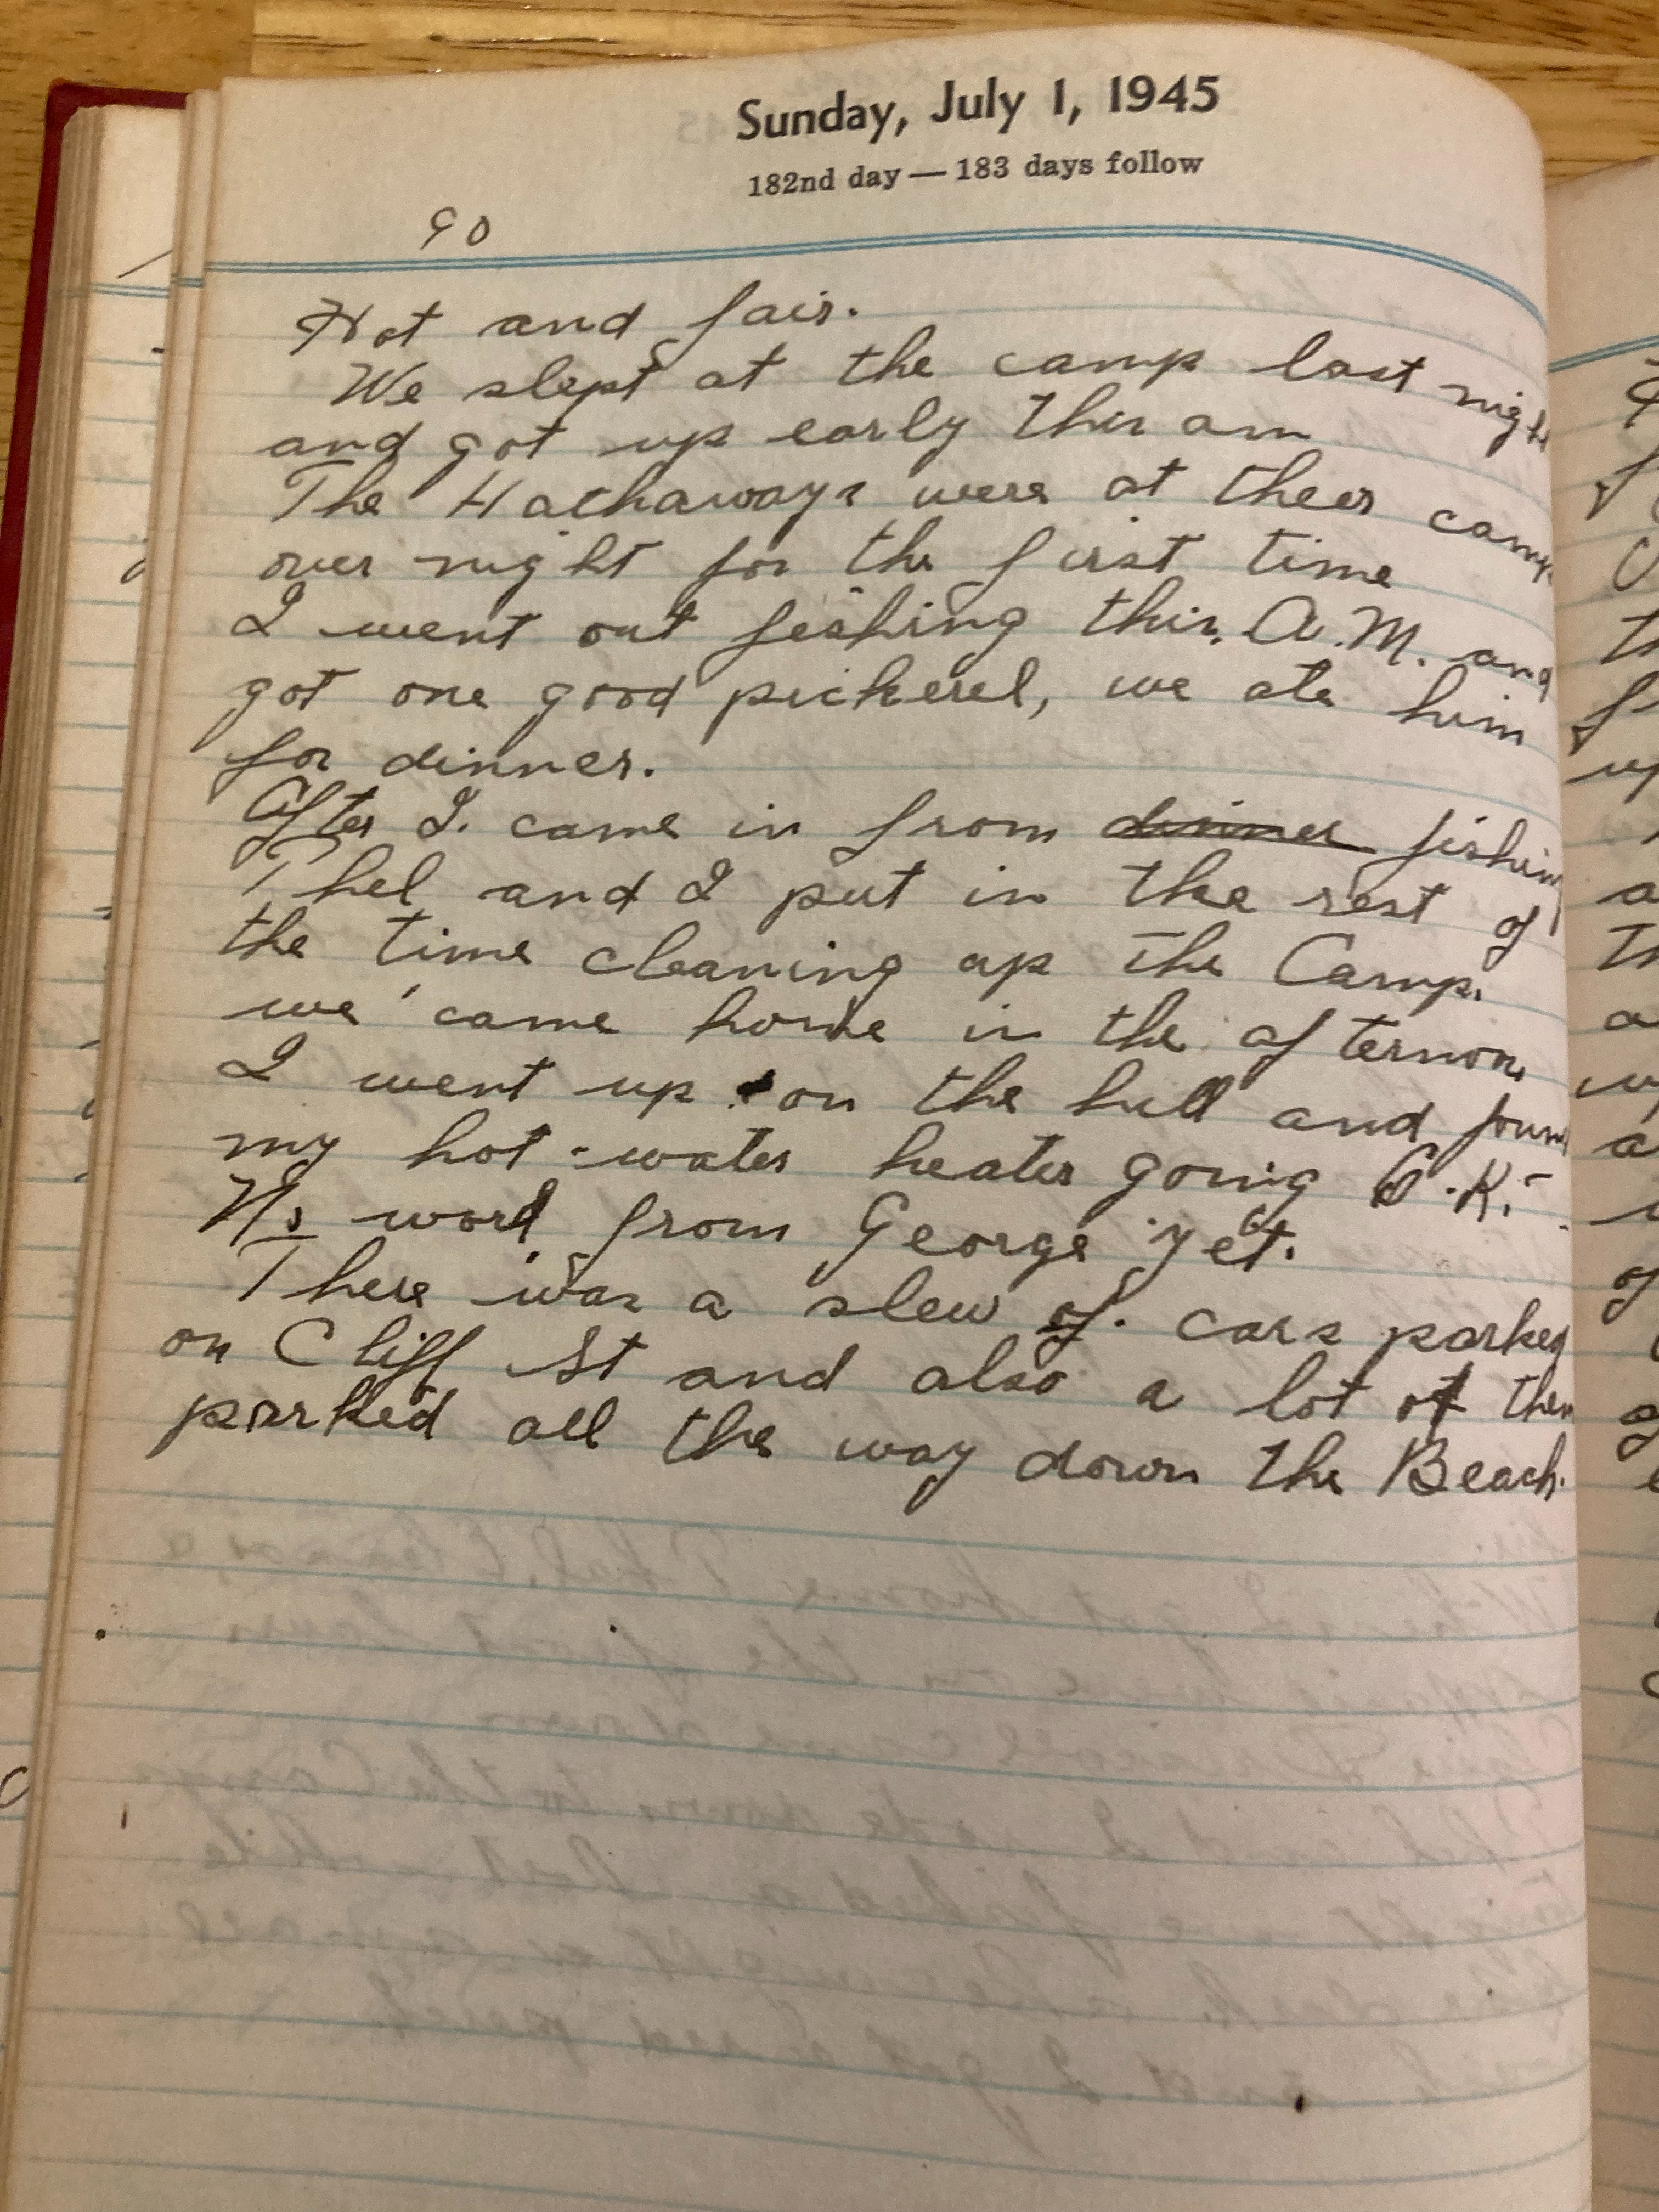 Sunday, July 1, 1945
182nd day — 183 days follow
90
Hot and fair.
We slept at the camp last night
and got up early this am
The Hathaways were at their camp
over night for the first time
I went out fishing this. A.M. and
got one good pickerel, we ate him
for dinner.
After I. came in from dinner fishing
Thel and I put in the rest of
the time cleaning up the Camp.
we came home in the afternoon
I went up on the hill and found
my hot-water heater going O.K.
No word from George yet.
There was a slew of cars parked
on Cliff St and also a lot of them
parked all the way down the Beach.